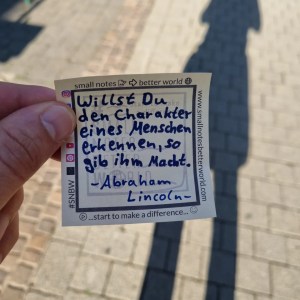 small notes better world
Willst Du
den Charakter
eines Menschen
erkennen, so
gib ihm Macht.
-Abraham
Lincoln-
...start to make a difference...
#SNBW
www.smallnotesbetterworld.com